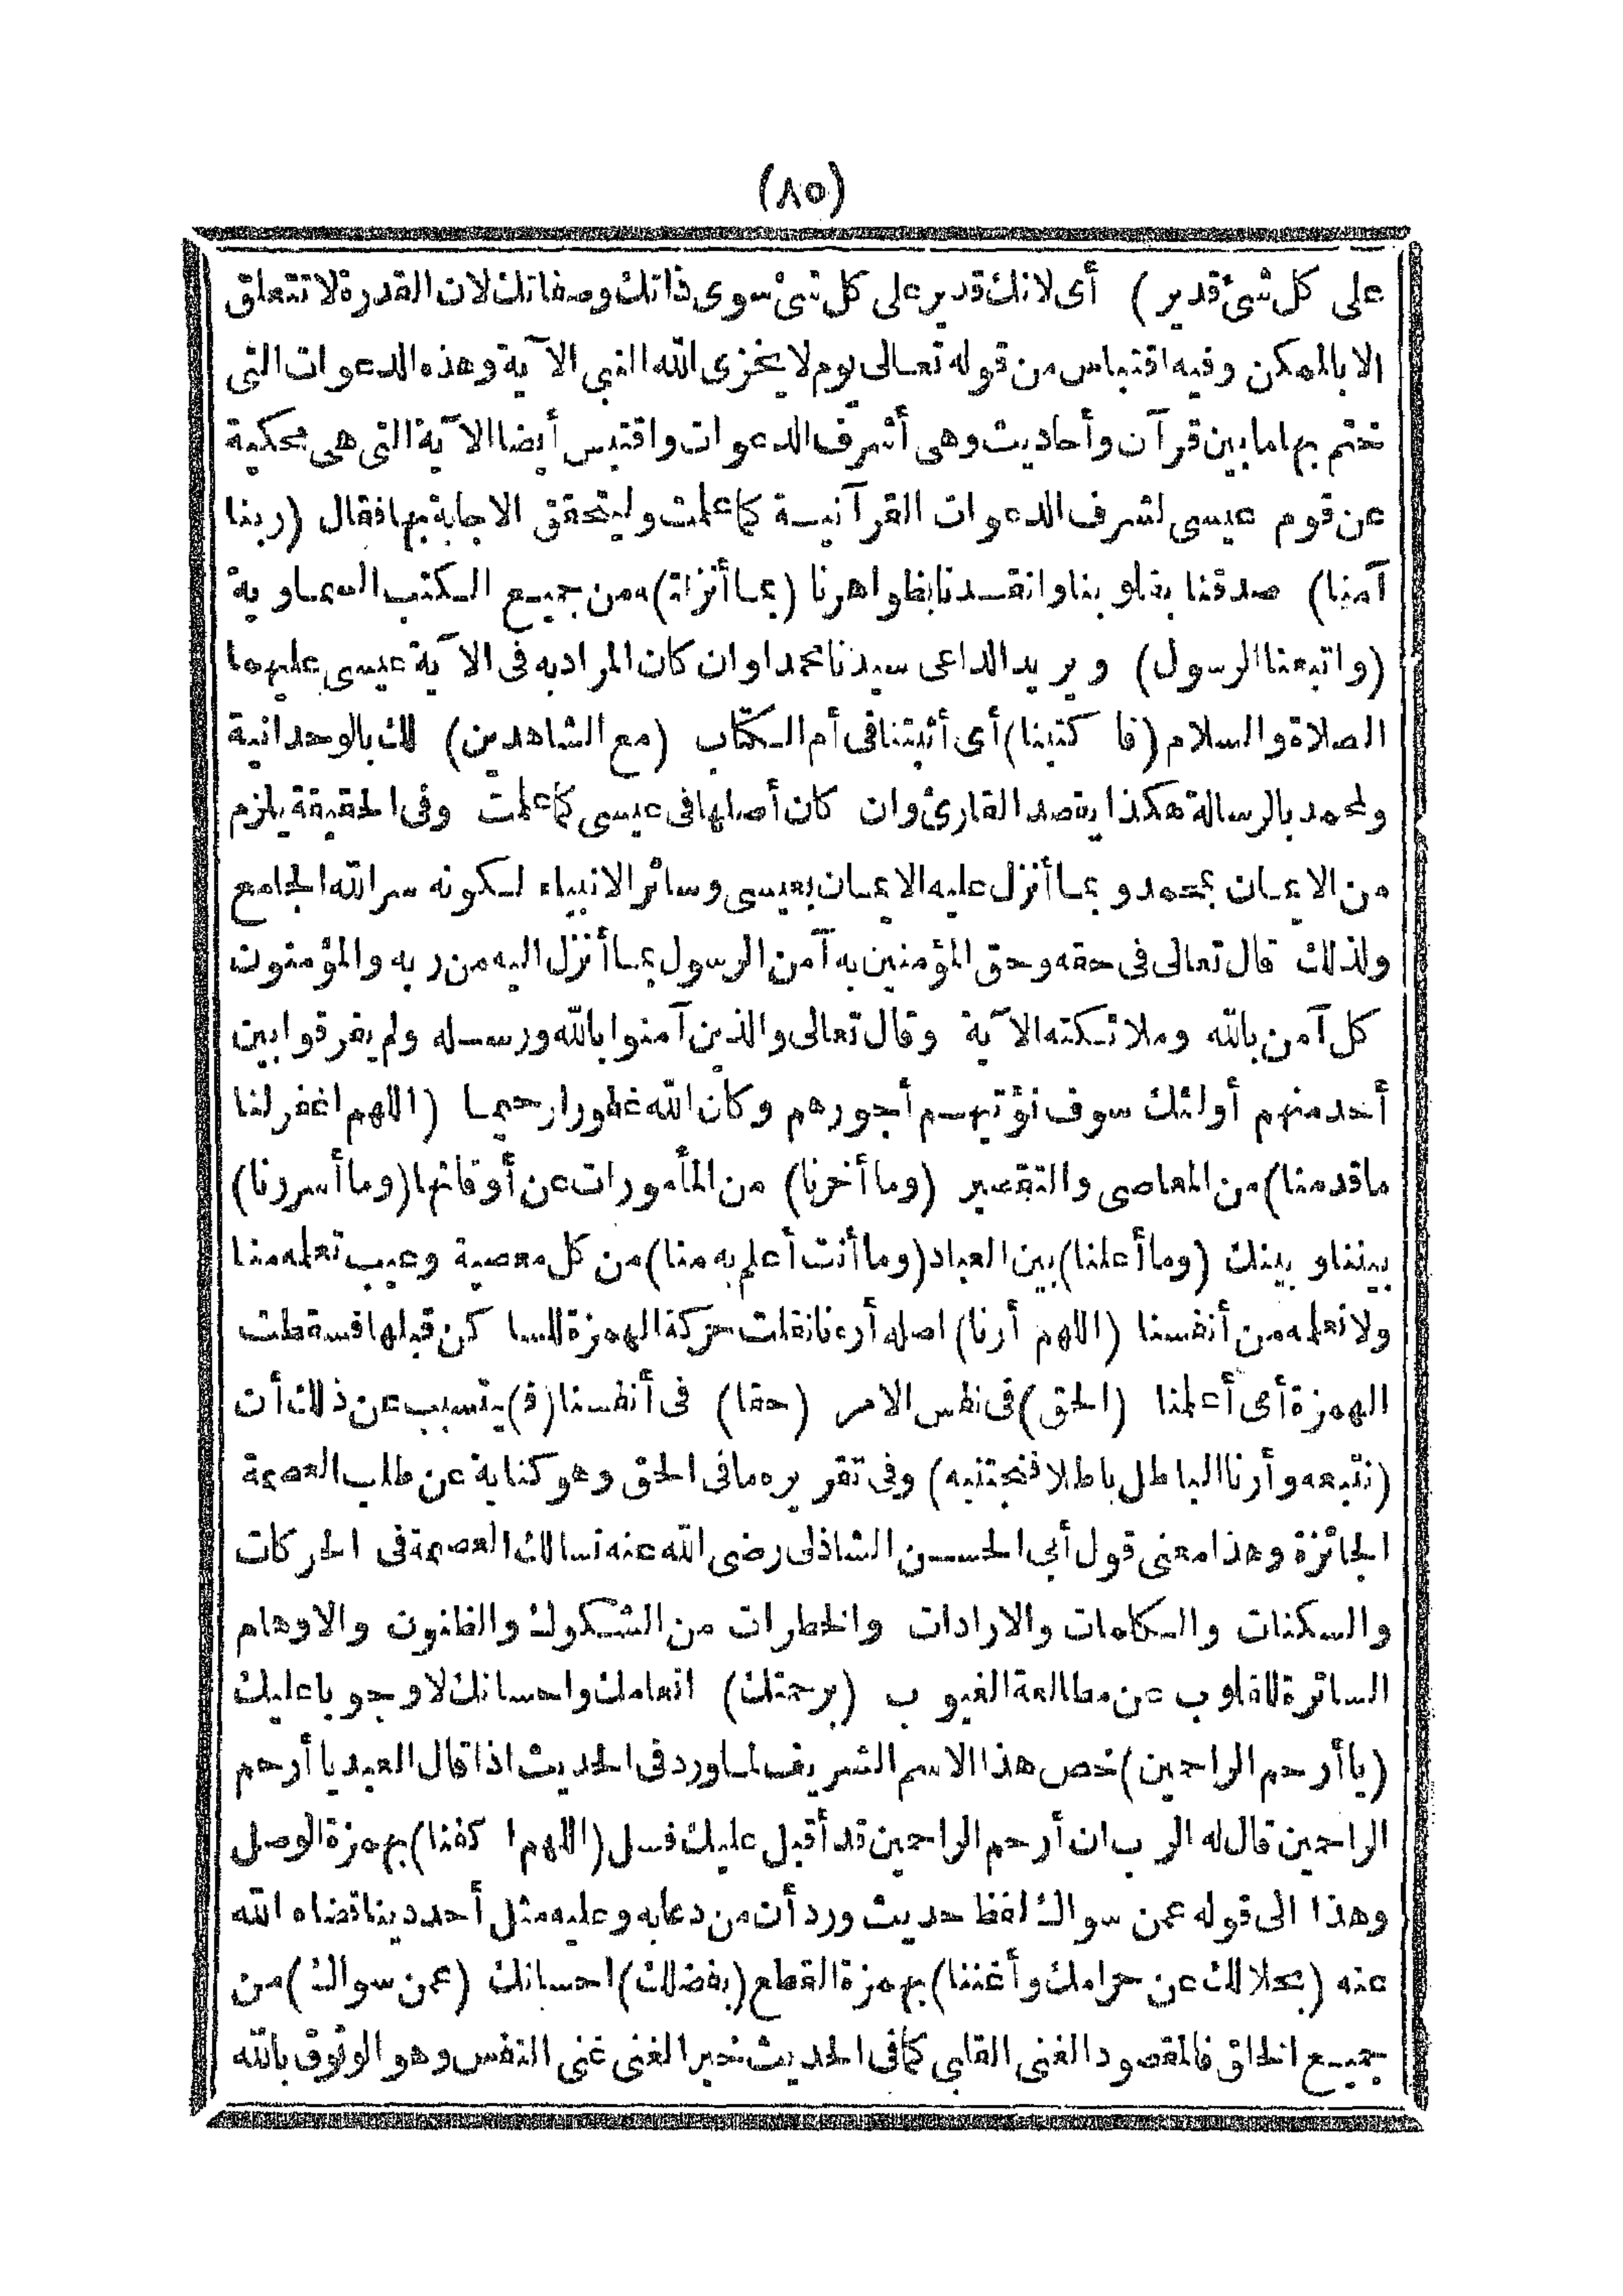 (٨٥)
على كل شئ قدير) أى لانك قدير على كل شئ سوى ذاتك وصفاتك لان القدرة لا تتعلق
الا بالممكن وفيه اقتباس من قوله تعالى يوم لا يخزى الله النبى الآية وهذه الدعوات التى
ختم بها ما بين قرآن وأحاديث وهى أشرف الدعوات واقتبس أيضا الآية التى هى محكية
عن قوم عيسى لشرف الدعوات القرآنية كما علمت وليتحقق الاجابة بها فقال (ربنا
آمنا) صدقنا بقلوبنا وانقدنا بظواهرنا (بما أنزلت) من جميع الكتب السماوية
(واتبعنا الرسول) ويريد الداعى سيدنا محمدا وان كان المراد به فى الآية عيسى عليهما
الصلاة والسلام (فاكتبنا) أى أثبتنا فى أم الكتاب (مع الشاهدين) لك بالوحدانية
ولمحمد بالرسالة هكذا يقصد القارئ وان كان أصلها فى عيسى كما علمت وفى الحقيقة يلزم
من الايمان بمحمد وبما أنزل عليه الايمان بعيسى وسائر الانبياء لكونه سر الله الجامع
ولذلك قال تعالى فى حقه وحق المؤمنين به آمن الرسول بما أنزل اليه من ربه والمؤمنون
كل آمن بالله وملائكته الآية وقال تعالى والذين آمنوا بالله ورسله ولم يفرقوا بين
أحد منهم أولئك سوف نؤتيهم أجورهم وكان الله غفورا رحيما (اللهم اغفر لنا
ما قدمنا) من المعاصى والتقصير (وما أخرنا) من المأمورات عن أوقاتها (وما أسررنا)
بيننا وبينك (وما أعلنا) بين العباد (وما أنت أعلم به منا) من كل معصية وعيب تعلمه منا
ولا نعلمه من أنفسنا (اللهم أرنا) اصله أرءنا نقلت حركة الهمزة للساكن قبلها فسقطت
الهمزة أى أعلمنا (الحق) فى نفس الامر (حقا) فى أنفسنا (ف) يتسبب عن ذلك أن
(نتبعه وأرنا الباطل باطلا فنجتنبه) وفى تقريره ما فى الحق وهو كناية عن طلب العصمة
الجائزة وهذا معنى قول أبى الحسن الشاذلى رضى الله عنه نسالك العصمة فى الحركات
والسكنات والكلمات والارادات والخطرات من الشكوك والظنون والاوهام
الساترة للقلوب عن مطالعة الغيوب (برحمتك) انعامك واحسانك لا وجوبا عليك
(يا أرحم الراحمين) خص هذا الاسم الشريف لما ورد فى الحديث اذا قال العبد يا أرحم
الراحمين قال له الرب ان أرحم الراحمين قد أقبل عليك فسل (اللهم اكفنا) بهمزة الوصل
وهذا الى قوله عمن سواك لفظ حديث ورد أن من دعا به وعليه مثل أحد دينا قضاه الله
عنه (بحلالك عن حرامك وأغننا) بهمزة القطع (بفضلك) احسانك (عمن سواك) من
جميع الخلق فالمقصود الغنى القلبى كما فى الحديث خير الغنى غنى النفس وهو الوثوق بالله